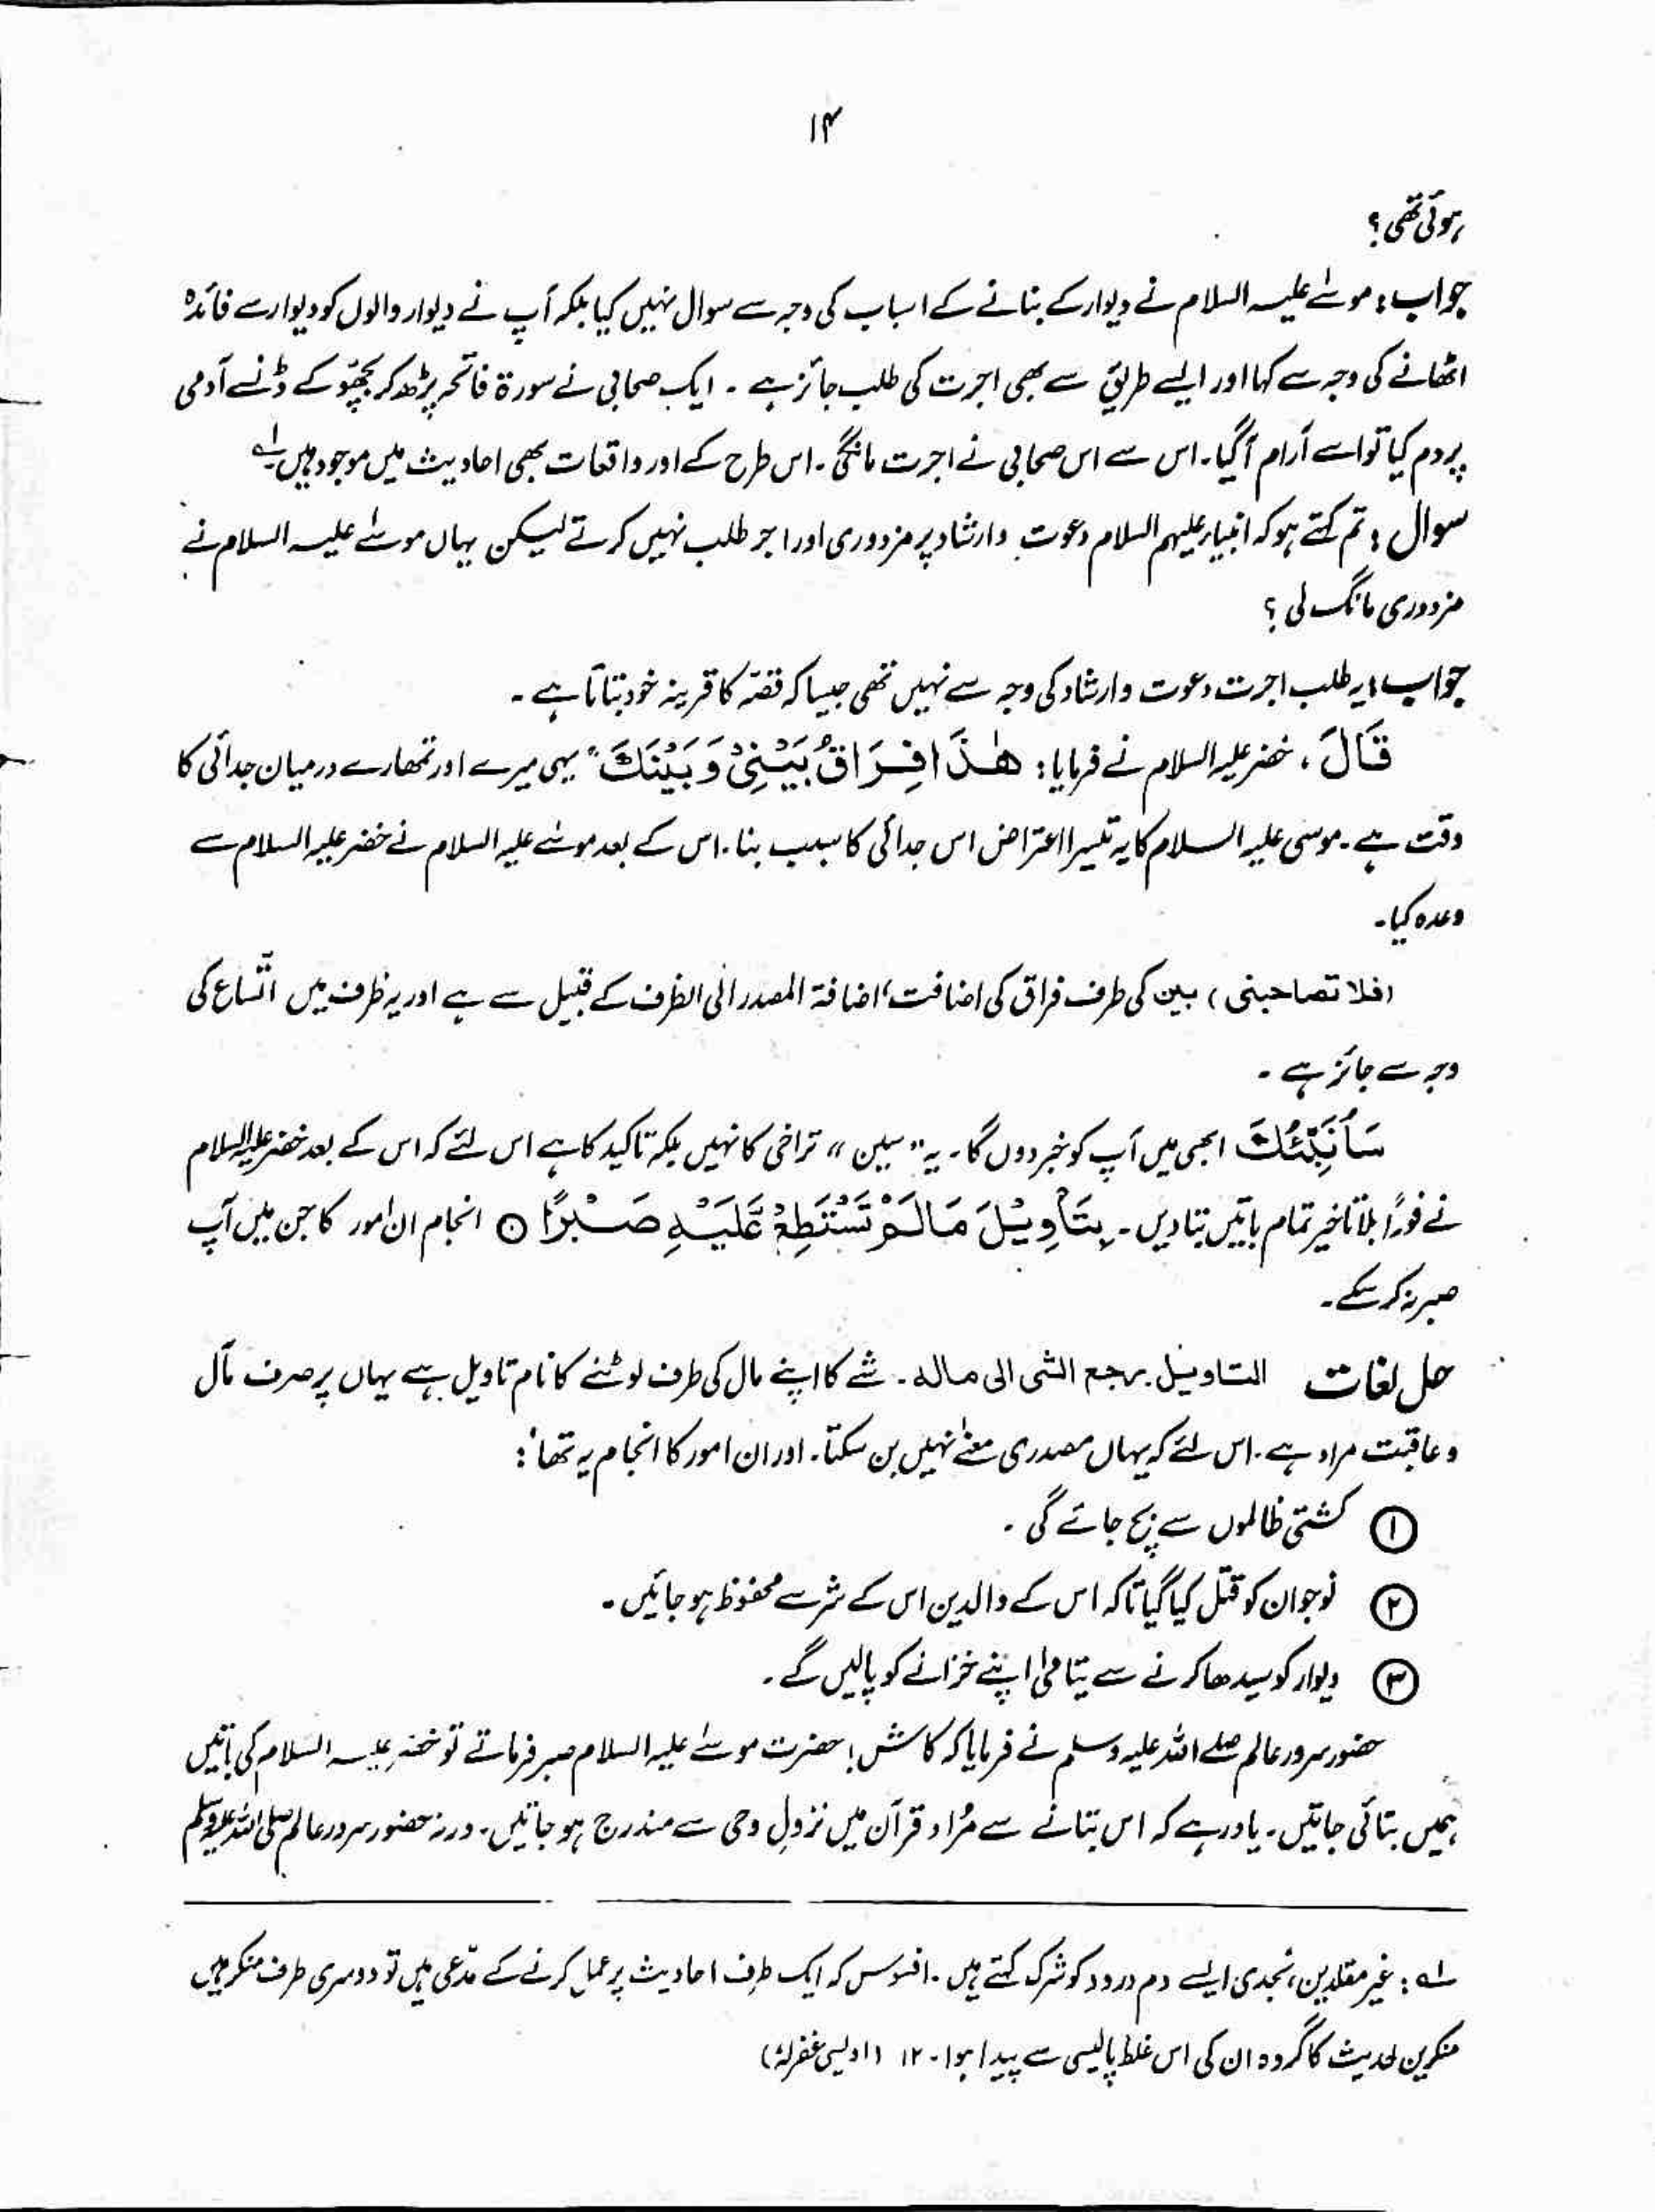 ۱۴
ہوئی تھی؟
جواب : موسٰے علیہ السلام نے دیوار کے بنانے کے اسباب کی وجہ سے سوال نہیں کیا بلکہ آپ نے دیوار والوں کو دیوار سے فائدہ
اٹھانے کی وجہ سے کہا اور ایسے طریق سے بھی اجرت کی طلب جائز ہے ۔ ایک صحابی نے سورۃ فاتحہ پڑھ کر بچھّو کے ڈنے آدمی
پر دم کیا تو اسے آرام آ گیا۔ اس سے اس صحابی نے اجرت مانگی ۔ اس طرح کے اور واقعات بھی احادیث میں موجود ہیں لہ
سوال : تم کہتے ہو کہ انبیاء علیہم السلام دعوت و ارشاد پر مزدوری اور اجر طلب نہیں کرتے لیکن یہاں موسٰے علیہ السلام نے
مزدوری مانگ لی ؟
جواب : یہ طلب اجرت دعوت و ارشاد کی وجہ سے نہیں تھی جیسا کہ قصّہ کا قرینہ خود بتاتا ہے ۔
قَالَ ، خضر علیہ السلام نے فرمایا : هٰذَا فِرَاقُ بَيْنِيْ وَبَيْنَكَ ۚ یہی میرے اور تمھارے درمیان جدائی کا
وقت ہے ۔ موسی علیہ السلام کا یہ تیسرا اعتراض اس جدائی کا سبب بنا ۔ اس کے بعد موسٰے علیہ السلام نے خضر علیہ السلام سے
وعدہ کیا۔
(فلا تصاحبنی) بین کی طرف فراق کی اضافت، اضافۃ المصدر الی الظرف کے قبیل سے ہے اور یہ ظرف میں اتّساع کی
وجہ سے جائز ہے ۔
سَاُنَبِّئُكَ ابھی میں آپ کو خبر دوں گا ۔ یہ "سین" تراخی کا نہیں بلکہ تاکید کا ہے اس لئے کہ اس کے بعد خضر علیہ السلام
نے فوراً بلا تاخیر تمام باتیں بتا دیں ۔ بِتَاْوِيْلِ مَالَمْ تَسْتَطِعْ عَّلَيْهِ صَبْرًا ○ انجام ان امور کا جن میں آپ
صبر نہ کر سکے ۔
حل لغات التاویل برجع الشی الی مالہ ۔ شے کا اپنے مال کی طرف لوٹنے کا نام تاویل ہے یہاں پر صرف مآل
و عاقبت مراد ہے ۔ اس لئے کہ یہاں مصدری معنٰے نہیں بن سکتا ۔ اور ان امور کا انجام یہ تھا :
① کشتی ظالموں سے بچ جائے گی ۔
② نوجوان کو قتل کیا گیا تاکہ اس کے والدین اس کے شر سے محفوظ ہو جائیں ۔
③ دیوار کو سیدھا کرنے سے یتامٰی اپنے خزانے کو پالیں گے ۔
حضور سرور عالم صلے اللہ علیہ وسلم نے فرمایا کہ کاش ! حضرت موسٰے علیہ السلام صبر فرماتے تو خضر علیہ السلام کی باتیں
ہمیں بتائی جاتیں ۔ یاد رہے کہ اس بتانے سے مُراد قرآن میں نزولِ وحی سے مندرج ہو جاتیں ۔ ورنہ حضور سرور عالم صلی اللہ علیہ وسلم
لہ : غیر مقلدین ، نجدی ایسے دم درود کو شرک کہتے ہیں ۔ افسوس کہ ایک طرف احادیث پر عمل کرنے کے مدّعی ہیں تو دوسری طرف منکر ہیں
منکرین حدیث کا گروہ ان کی اس غلط پالیسی سے پیدا ہوا ۔ ۱۲ (اویسی غفرلہٗ)